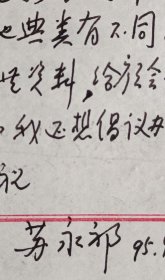 也典类有不同
些资料,给教会
我还想借议
祝
苏永祁 95.